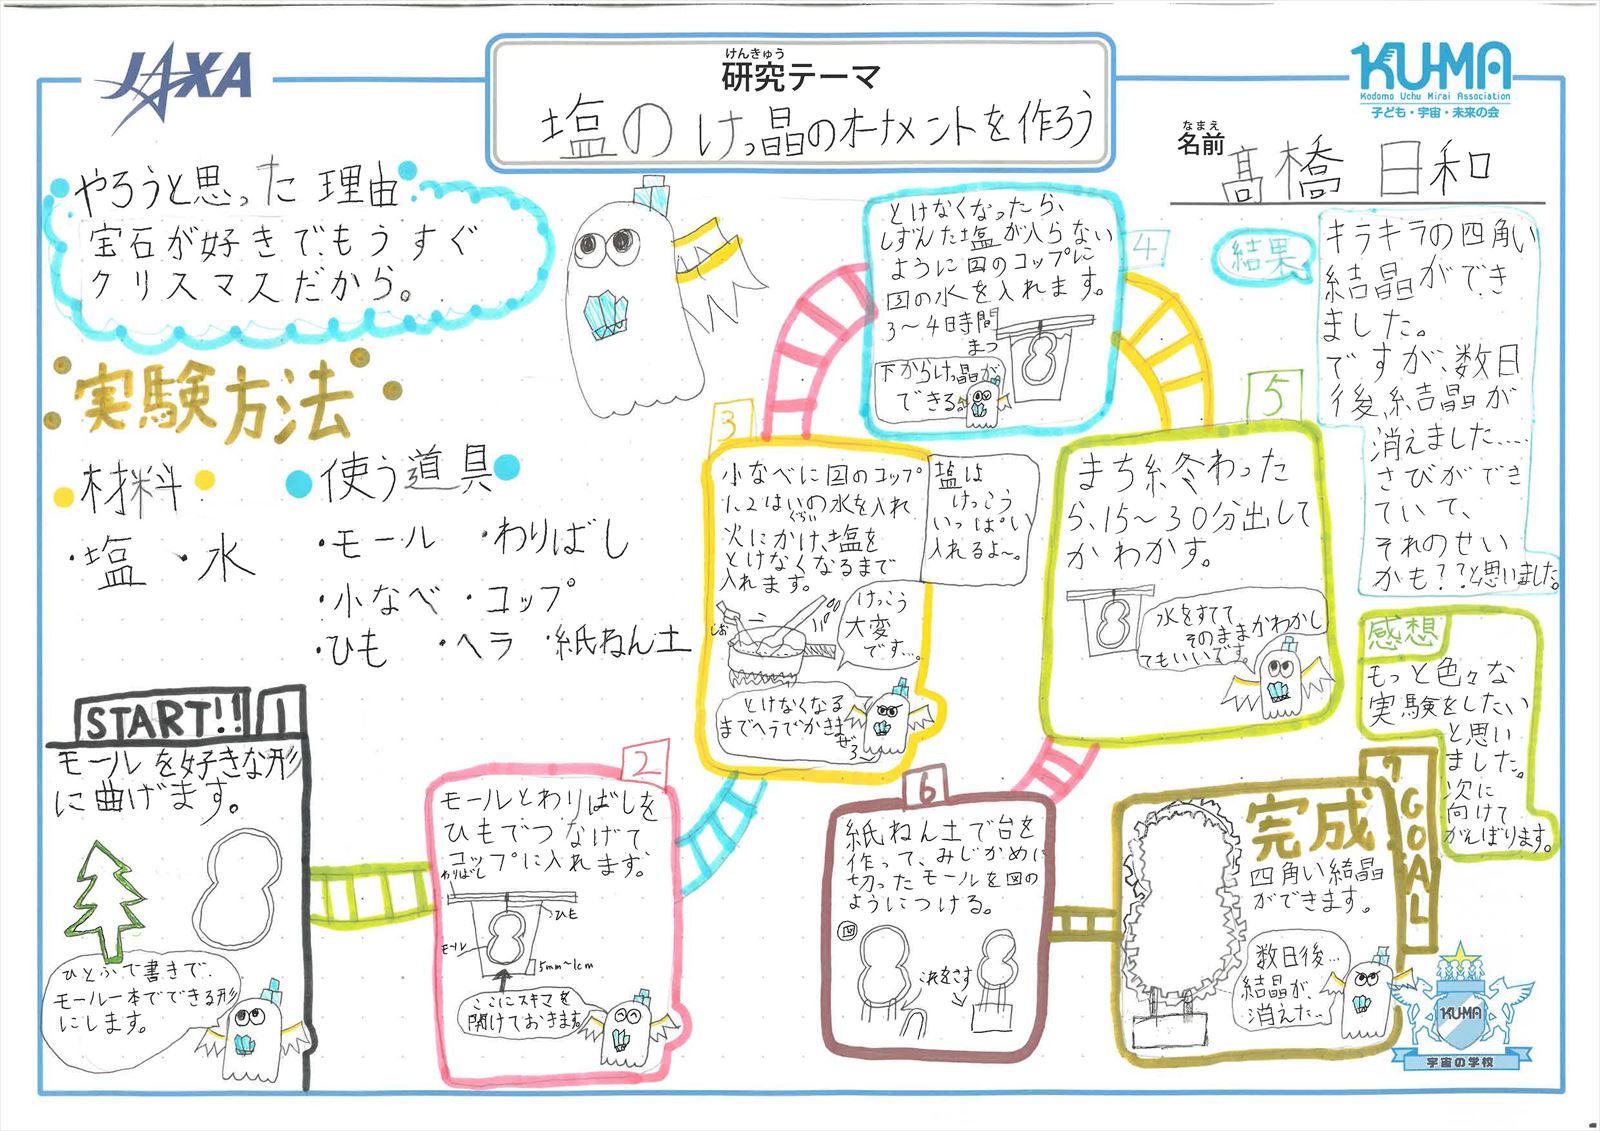 JAXA
けんきゅう
研究テーマ
塩のけっ晶のオーナメントを作ろう
KU-MA
Kodomo Uchu Mirai Association
子ども・宇宙・未来の会
なまえ
名前
髙橋 日和
やろうと思った理由
宝石が好きでもうすぐ
クリスマスだから。
実験方法
材料
・塩 ・水
使う道具
・モール ・わりばし
・小なべ ・コップ
・ひも ・ヘラ ・紙ねん土
START!! 1
モールを好きな形
に曲げます。
ひとふで書きで、
モール一本でできる形
にします。
2
モールとわりばしを
ひもでつなげて
コップに入れます。
わりばし
ひも
モール
5mm~1cm
ここにスキマを
開けておきます。
3
小なべに図のコップ
1、2はいの水を入れ
くらい
火にかけ、塩を
とけなくなるまで
入れます。
塩は
けっこう
いっぱい
入れるよ~。
しお
けっこう
大変
です…。
とけなくなる
までヘラでかきま
ぜろ~
4
とけなくなったら、
しずんだ塩が入らない
ように図のコップに
図の水を入れます。
3~4日時間
まつ
下からけっ晶が
できる。
5
まち終わった
ら、15~30分出して
かわかす。
水をすてて
そのままかわかし
てもいいです。
6
紙ねん土で台を
作って、みじかめに
切ったモールを図の
ようにつける。
図
これをさす
7 GOAL
完成
四角い結晶
ができます。
数日後…
結晶が、
消えた…
結果
キラキラの四角い
結晶ができ
ました。
ですが、数日
後、結晶が
消えました……
さびができ
ていて、
それのせい
かも??と思いました。
感想
もっと色々な
実験をしたい
と思い
ました。
次に
向けて
がんばります。
KU-MA
宇宙の学校